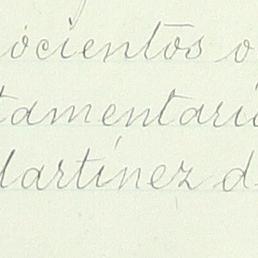 ocientos o
tamentari
Martínez d